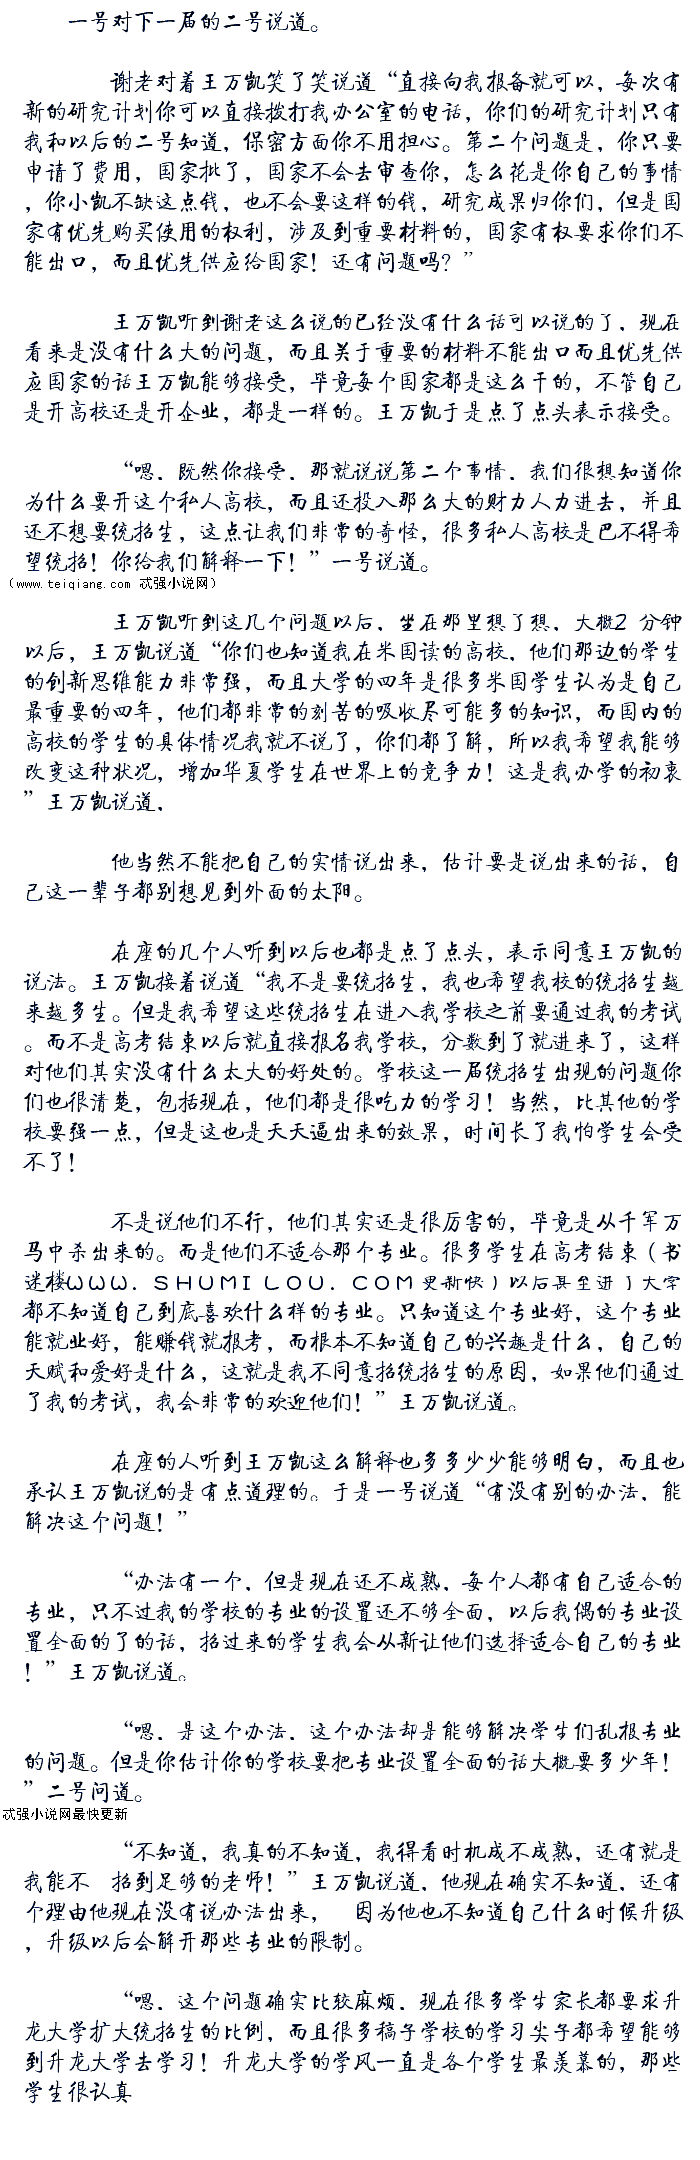 一号对下一届的二号说道。
谢老对着王万凯笑了笑说道“直接向我报备就可以，每次有
新的研究计划你可以直接拨打我办公室的电话，你们的研究计划只有
我和以后的二号知道，保密方面你不用担心。第二个问题是，你只要
申请了费用，国家批了，国家不会去审查你，怎么花是你自己的事情
，你小凯不缺这点钱，也不会要这样的钱，研究成果归你们，但是国
家有优先购买使用的权利，涉及到重要材料的，国家有权要求你们不
能出口，而且优先供应给国家！还有问题吗？”
王万凯听到谢老这么说的已经没有什么话可以说的了，现在
看来是没有什么大的问题，而且关于重要的材料不能出口而且优先供
应国家的话王万凯能够接受，毕竟每个国家都是这么干的，不管自己
是开高校还是开企业，都是一样的。王万凯于是点了点头表示接受。
“嗯，既然你接受，那就说说第二个事情，我们很想知道你
为什么要开这个私人高校，而且还投入那么大的财力人力进去，并且
还不想要统招生，这点让我们非常的奇怪，很多私人高校是巴不得希
望统招！你给我们解释一下！”一号说道。
（www.teiqiang.com 忒强小说网）
王万凯听到这几个问题以后，坐在那里想了想，大概2 分钟
以后，王万凯说道“你们也知道我在米国读的高校，他们那边的学生
的创新思维能力非常强，而且大学的四年是很多米国学生认为是自己
最重要的四年，他们都非常的刻苦的吸收尽可能多的知识，而国内的
高校的学生的具体情况我就不说了，你们都了解，所以我希望我能够
改变这种状况，增加华夏学生在世界上的竞争力！这是我办学的初衷
”王万凯说道，
他当然不能把自己的实情说出来，估计要是说出来的话，自
己这一辈子都别想见到外面的太阳。
在座的几个人听到以后也都是点了点头，表示同意王万凯的
说法。王万凯接着说道“我不是要统招生，我也希望我校的统招生越
来越多生。但是我希望这些统招生在进入我学校之前要通过我的考试
。而不是高考结束以后就直接报名我学校，分数到了就进来了，这样
对他们其实没有什么太大的好处的。学校这一届统招生出现的问题你
们也很清楚，包括现在，他们都是很吃力的学习！当然，比其他的学
校要强一点，但是这也是天天逼出来的效果，时间长了我怕学生会受
不了！
不是说他们不行，他们其实还是很厉害的，毕竟是从千军万
马中杀出来的。而是他们不适合那个专业。很多学生在高考结束（书
迷楼ＷＷＷ．ＳＨＵＭＩＬＯＵ．ＣＯＭ更新快）以后甚至进了大学
都不知道自己到底喜欢什么样的专业。只知道这个专业好，这个专业
能就业好，能赚钱就报考，而根本不知道自己的兴趣是什么，自己的
天赋和爱好是什么，这就是我不同意招统招生的原因，如果他们通过
了我的考试，我会非常的欢迎他们！”王万凯说道。
在座的人听到王万凯这么解释也多多少少能够明白，而且也
承认王万凯说的是有点道理的。于是一号说道“有没有别的办法，能
解决这个问题！”
“办法有一个，但是现在还不成熟，每个人都有自己适合的
专业，只不过我的学校的专业的设置还不够全面，以后我偶的专业设
置全面的了的话，招过来的学生我会从新让他们选择适合自己的专业
！”王万凯说道。
“嗯，是这个办法，这个办法却是能够解决学生们乱报专业
的问题。但是你估计你的学校要把专业设置全面的话大概要多少年！
”二号问道。
忒强小说网最快更新
“不知道，我真的不知道，我得看时机成不成熟，还有就是
我能不　招到足够的老师！”王万凯说道，他现在确实不知道，还有
个理由他现在没有说办法出来，　因为他也不知道自己什么时候升级
，升级以后会解开那些专业的限制。
“嗯，这个问题确实比较麻烦，现在很多学生家长都要求升
龙大学扩大统招生的比例，而且很多稿子学校的学习尖子都希望能够
到升龙大学去学习！升龙大学的学风一直是各个学生最羡慕的，那些
学生很认真